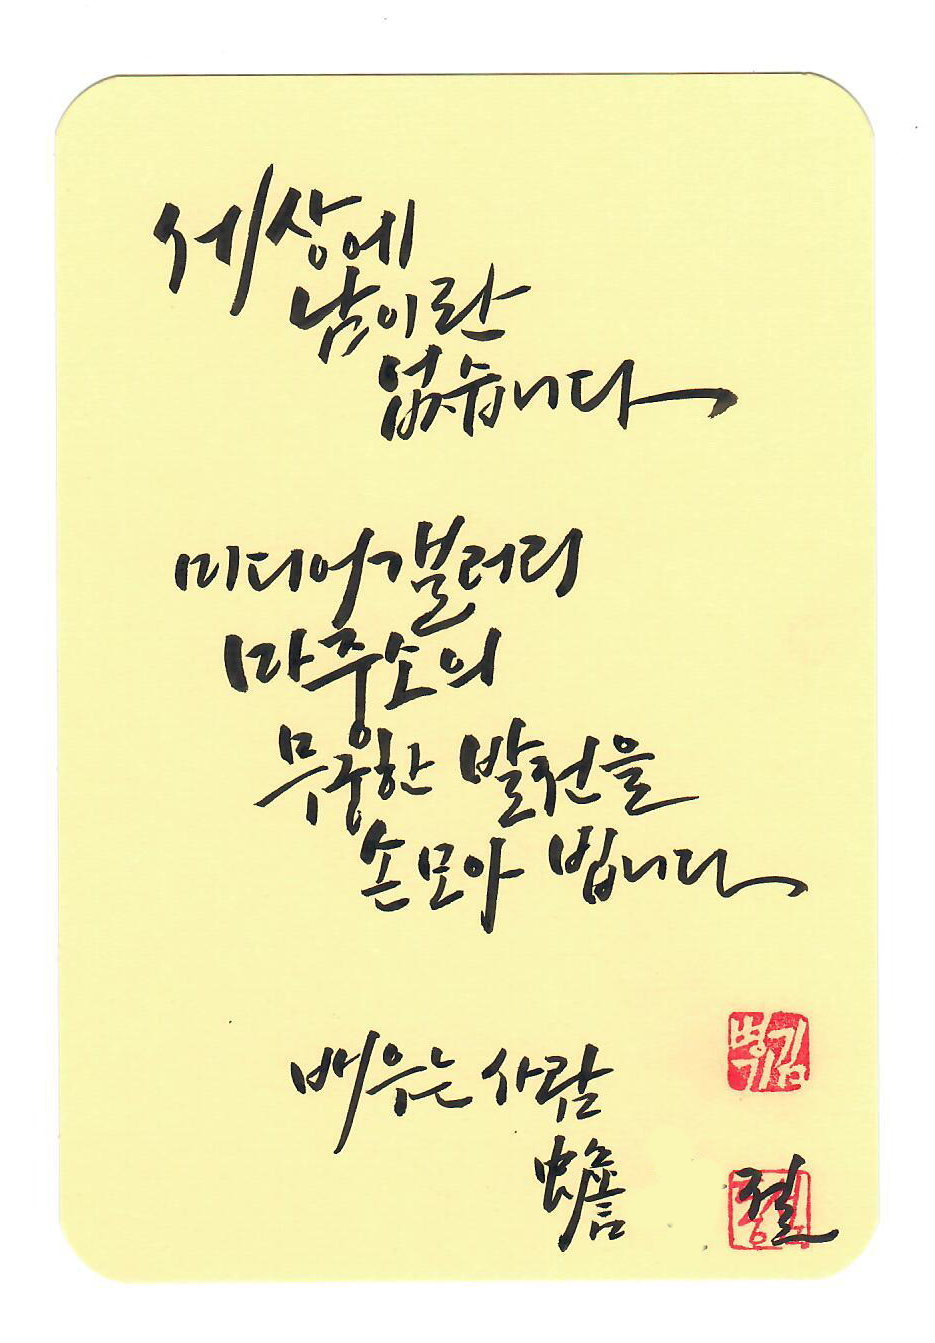 세상에
남이란
없습니다
미디어갤러리
마중소의
무궁한 발전을
손모아 빕니다
배우는 사람
蟾
김병기
절